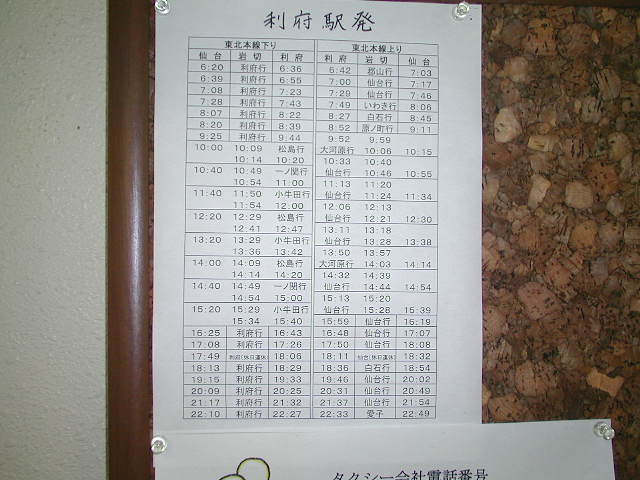 利府駅発
東北本線下り 東北本線上り
仙台 岩切 利府 利府 岩切 仙台
6:20 利府行 6:36 6:42 郡山行 7:03
6:39 利府行 6:55 7:00 仙台行 7:17
7:08 利府行 7:23 7:29 仙台行 7:46
7:28 利府行 7:43 7:49 いわき行 8:06
8:07 利府行 8:22 8:27 白石行 8:45
8:20 利府行 8:39 8:52 原ノ町行 9:11
9:25 利府行 9:44 9:52 9:59
10:00 10:09 松島行 大河原行 10:06 10:15
10:14 10:20 10:33 10:40
10:40 10:49 一ノ関行 仙台行 10:46 10:55
10:54 11:00 11:13 11:20
11:40 11:50 小牛田行 仙台行 11:24 11:34
11:54 12:00 12:06 12:13
12:20 12:29 松島行 仙台行 12:21 12:30
12:41 12:47 13:11 13:18
13:20 13:29 小牛田行 仙台行 13:28 13:38
13:36 13:42 13:50 13:57
14:00 14:09 松島行 大河原行 14:03 14:14
14:14 14:20 14:32 14:39
14:40 14:49 一ノ関行 仙台行 14:44 14:54
14:54 15:00 15:13 15:20
15:20 15:29 小牛田行 仙台行 15:28 15:39
15:34 15:40 15:59 仙台行 16:19
16:25 利府行 16:43 16:48 仙台行 17:07
17:08 利府行 17:26 17:50 仙台行 18:08
17:49 利府(休日運休) 18:06 18:11 仙台(休日運休) 18:32
18:13 利府行 18:29 18:36 白石行 18:54
19:15 利府行 19:33 19:46 仙台行 20:02
20:09 利府行 20:25 20:31 仙台行 20:49
21:17 利府行 21:32 21:37 仙台行 21:54
22:10 利府行 22:27 22:33 愛子 22:49
タクシー会社電話番号